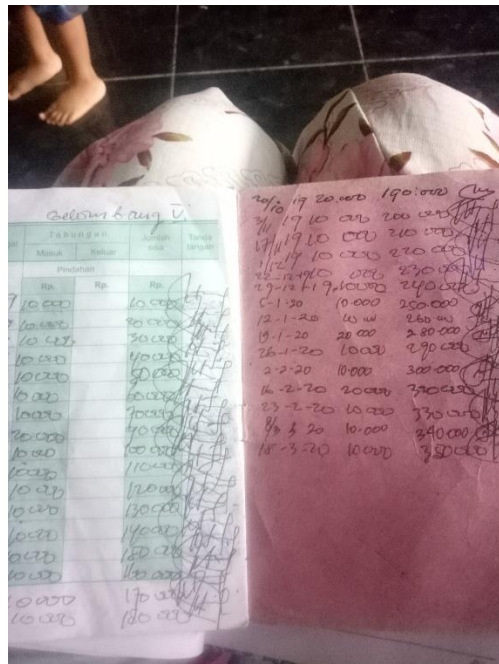 Gelombang V
Tabungan Jumlah sisa Tanda tangan
Masuk Keluar
Pindahan
Rp. Rp. Rp.
10.000 10.000
10.000 20.000
10.000 30.000
10.000 40.000
10.000 50.000
10.000 60.000
10.000 70.000
20.000 90.000
10.000 100.000
10.000 110.000
10.000 120.000
10.000 130.000
10.000 140.000
10.000 150.000
10.000 160.000
10.000 170.000
10.000 180.000
20/10 19 20.000 190.000
19 10 000 200 000
19 10 000 210 000
19 10 000 220 000
22-12-19 10 000 230 000
29-12-19 10000 240 000
5-1-20 10.000 250.000
12-1-20 10 000 260 000
19-1-20 20 000 280.000
26-1-20 10 000 290 000
2-2-20 10.000 300.000
16-2-20 20000 320 000
23-2-20 10 000 330 000
8/3 20 10.000 340.000
18-3-20 10000 350 000